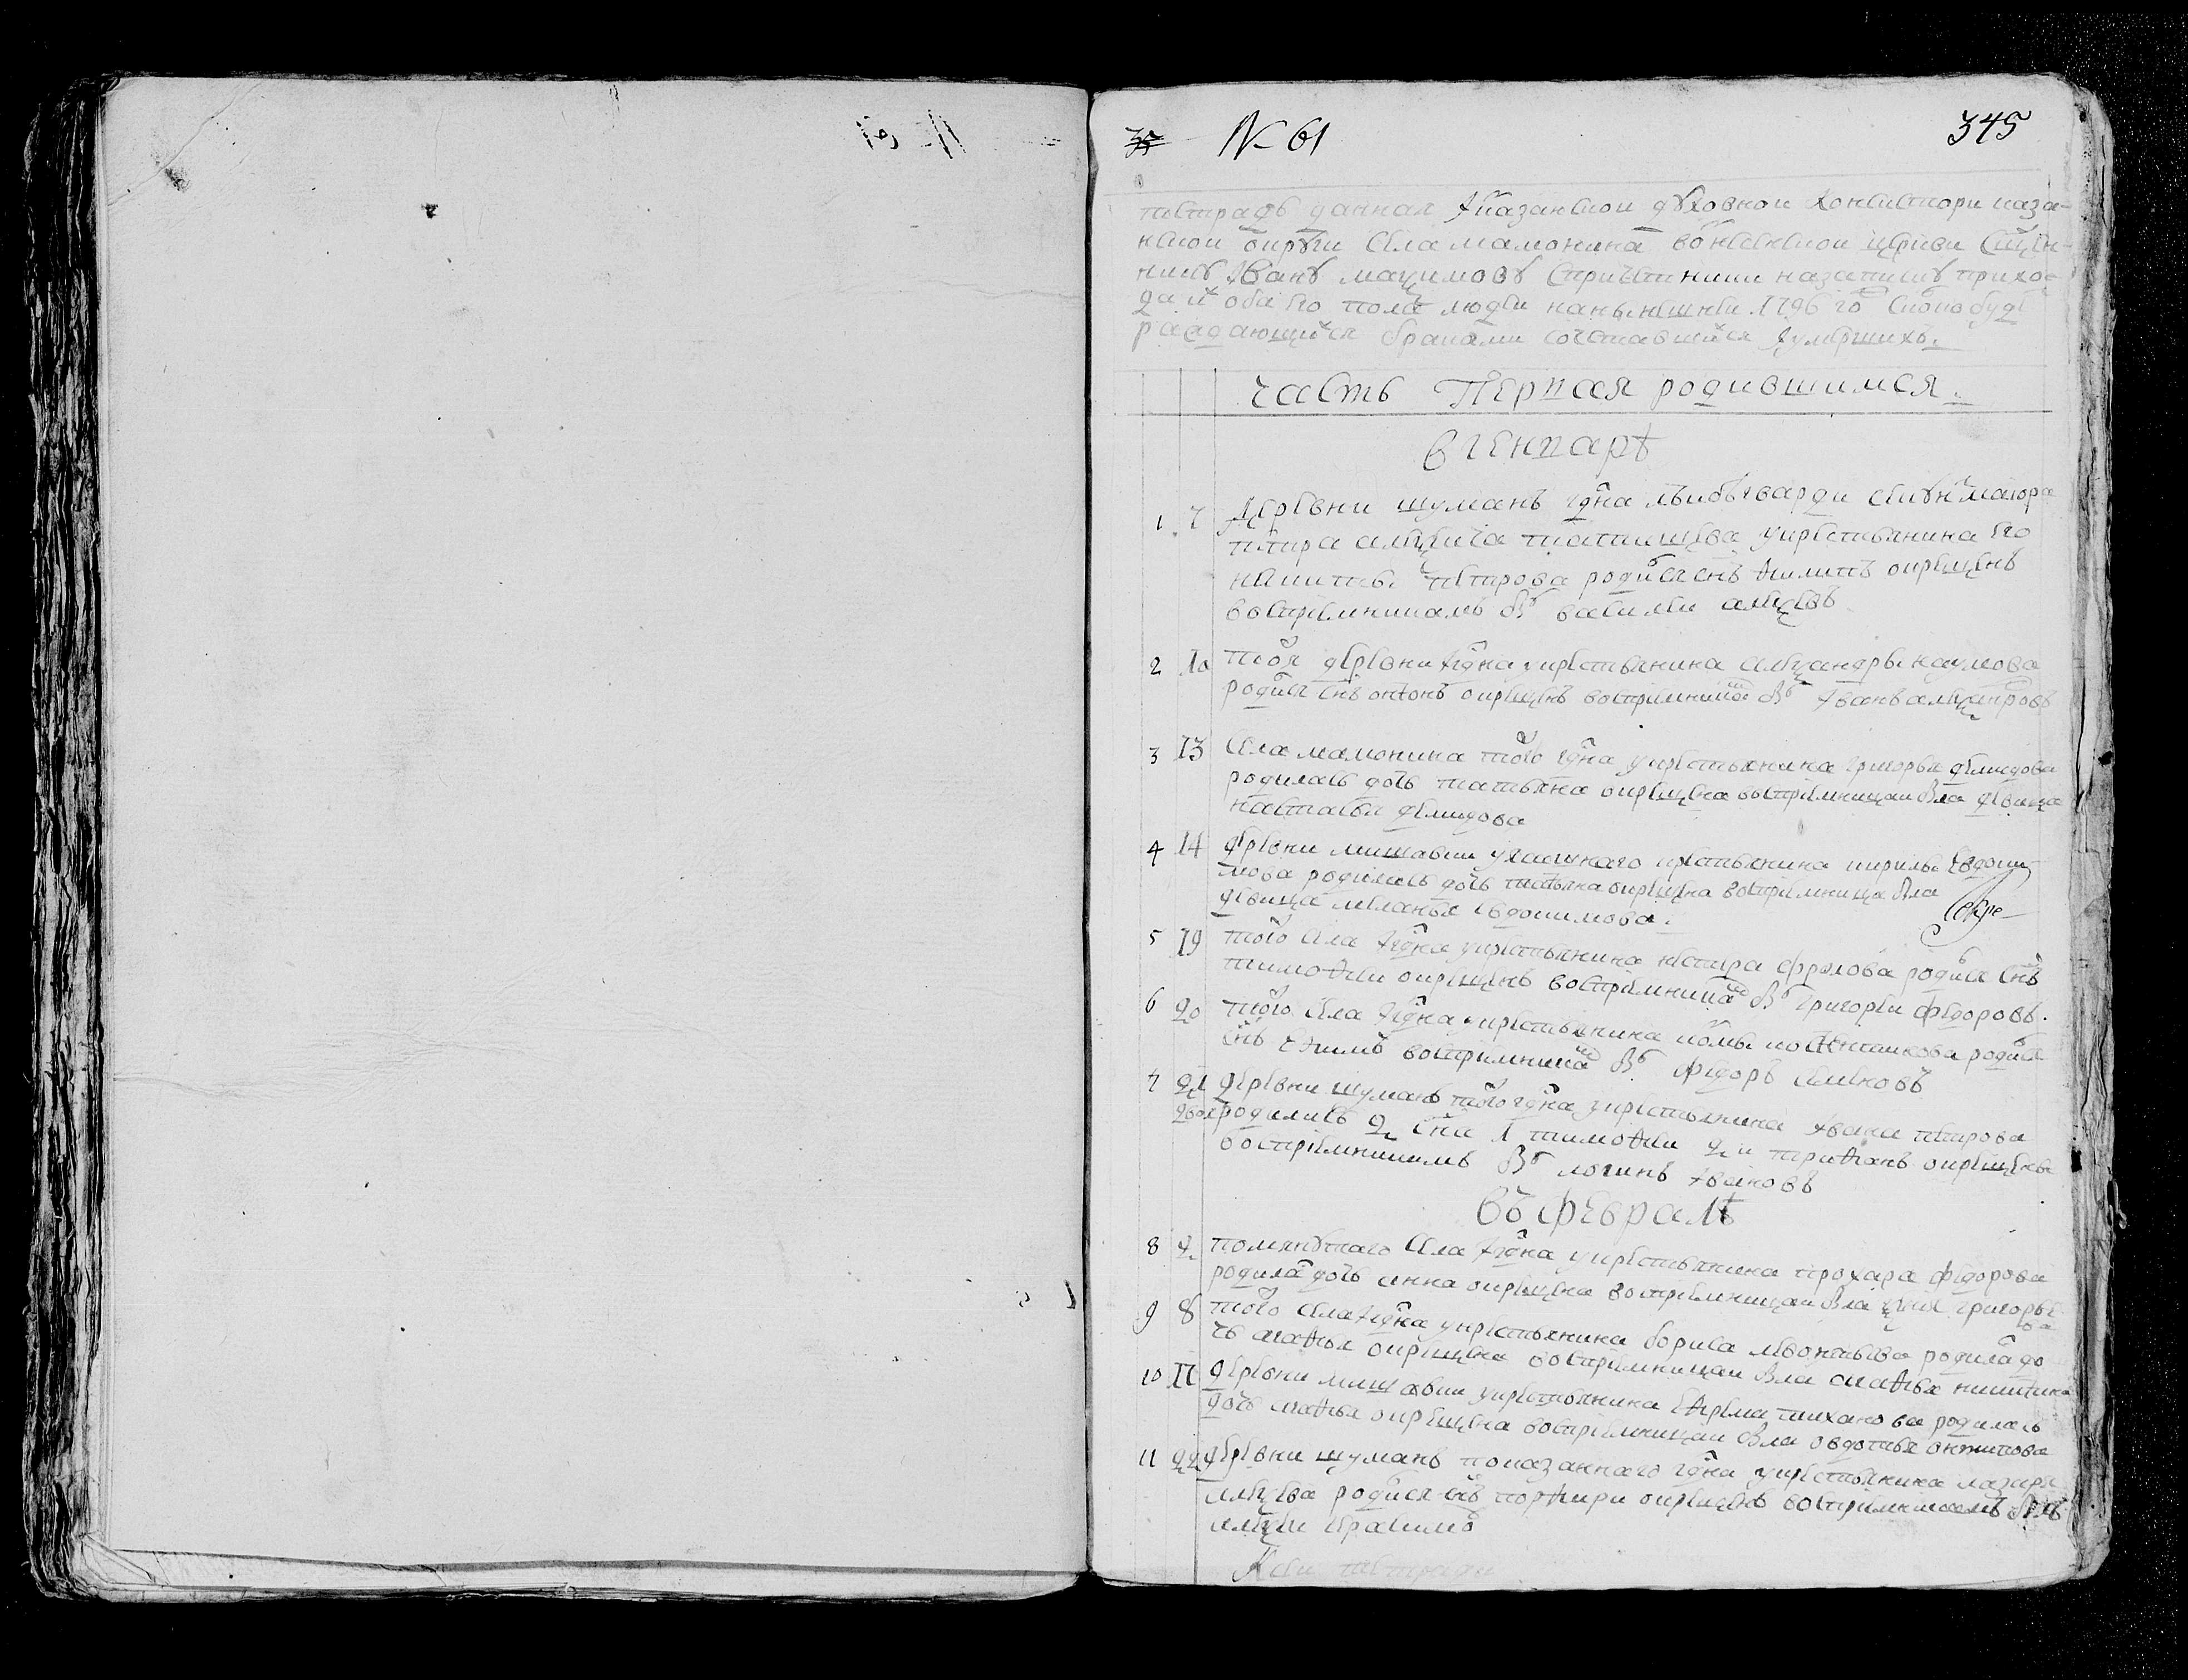 35 № 61 345
тетрадь данная из казанской духовной консистори каза-
нской округи села мамонина вознесенской церкви сщен-
нику Ивану максимову с причетники на записку прихо-
да ихъ обоего пола людей на нынешней 1796 годъ сколко будетъ
раждающихся браками сочетавшихся и умершихъ.
часть Первая родившимся.
в генваре
1 7 Деревни шуманъ гдна лейбъ гвардии секунъ маиора
петра алексеича татищева у крестьянина его
никиты петрова родился снъ филипъ крещенъ
восприемникамъ былъ василеи алексеевъ
2 10 тоя деревни и гдна у крестьянина александры наумова
родился снъ антонъ крещенъ восприемникомъ былъ Иванъ александровъ
3 13 села мамонина того гдна у крестьянина григорья демидова
родилась дочь татьяна крещена восприемницаи была девица
настасья демидова
4 14 деревни мишавки у крестьянина кирилы Евдоки-
мова родилась дочь татьяна крещена восприемница была
девица меланья Евдокимова. Секре-
5 19 того села и гдна у крестьянина нестера фролова родился снъ
тимофеи крещенъ восприемникомъ былъ григореи федоровъ.
6 20 того села и гдна у крестьянина родился
снъ восприемникомъ былъ федоръ семеновъ
7 21 деревни шуманъ того гдна у крестьянина Ивана петрова
двоя родились 2 сна 1 тимофеи 2 и трифанъ крещены
восприемникимъ былъ логинъ Ивановъ
въ феврале
8 2 помянутаго села и гдна у крестьянина прохара федорова
родилась дочь анна крещена восприемницаи была григорьева
9 8 того села и гдна у крестьянина бориса леонтьева родилась до-
чь агафья крещена восприемницаи была агафья никитина
10 11 деревни мишавки у крестьянина Ефрема тиханова родилась
дочь агафья крещена восприемницаи была овдотья антипова
11 22 деревни шуманъ показаннаго гдна у крестьянина лазаря
алексеева родился снъ порфири крещенъ восприемникамъ былъ
алексеи герасимовъ
К сеи тетради